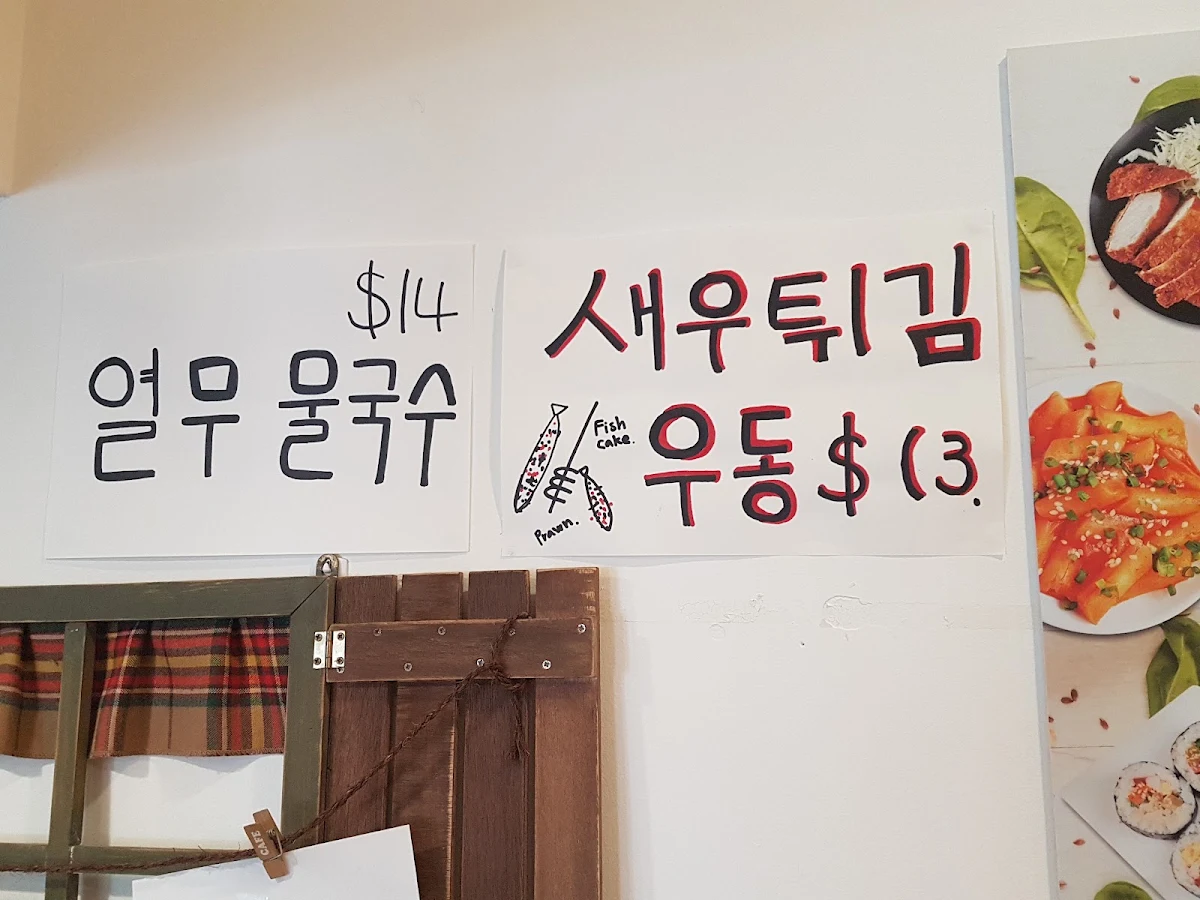 $14
열무 물국수
새우튀김
우동 $13.
Fish
cake.
Prawn.
CAFE